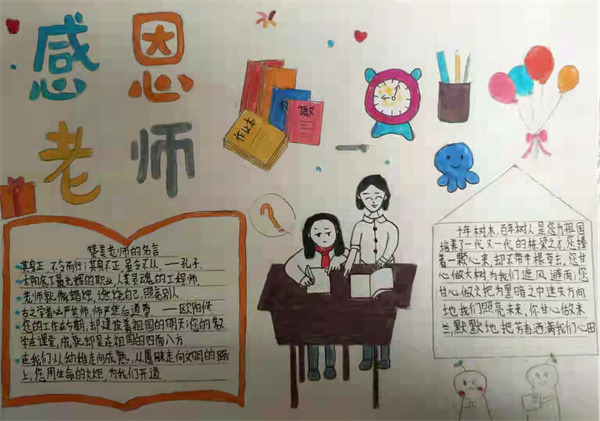 感恩
老师
作业本
数
语文
?
赞美老师的名言
其身正,不令而行;其身不正,虽令不从。——孔子
太阳底下最光辉的职业,人类灵魂的工程师
老师就像蜡烛,燃烧自己,照亮别人
古之学者必严其师,师严然后道尊——欧阳修
您的工作在今朝,却建设着祖国的明天;您的教
学在课堂,成就却是在祖国的四面八方。
在我们从幼稚走向成熟,从愚昧走向文明的路
上,您用生命的火炬,为我们开道
十年树木,百年树人是您为祖国
培养了一代又一代的栋梁之才,您捧
着一颗心来,却不带半根草去,您甘
心做大树为我们遮风避雨;您
甘心做火把为黑暗之中迷失方向
地我们照亮未来,你甘心做米
兰,默默地把芳香洒满我们心田